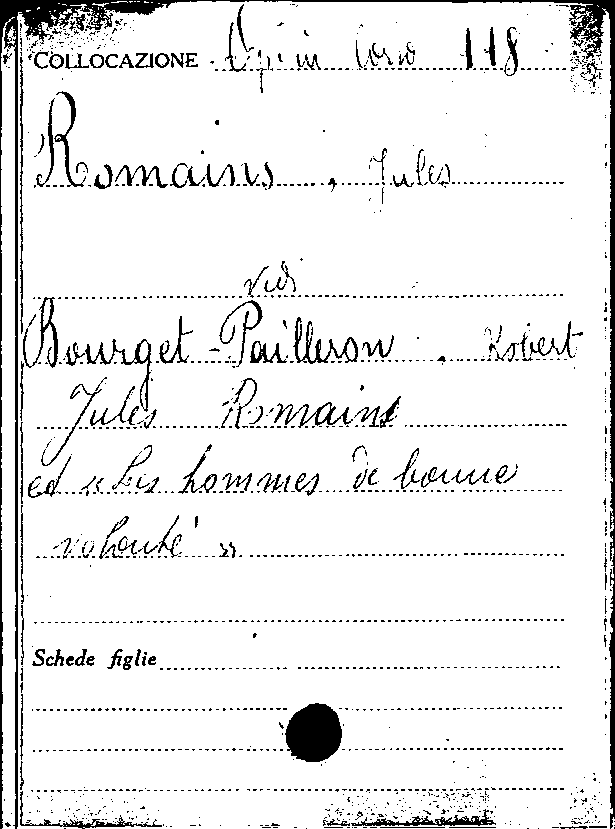 COLLOCAZIONE 118
Romains, Jules
vedi
Bourget-Pailleron, Robert
Jules Romains
ed «Les hommes de bonne
volonté»
Schede figlie